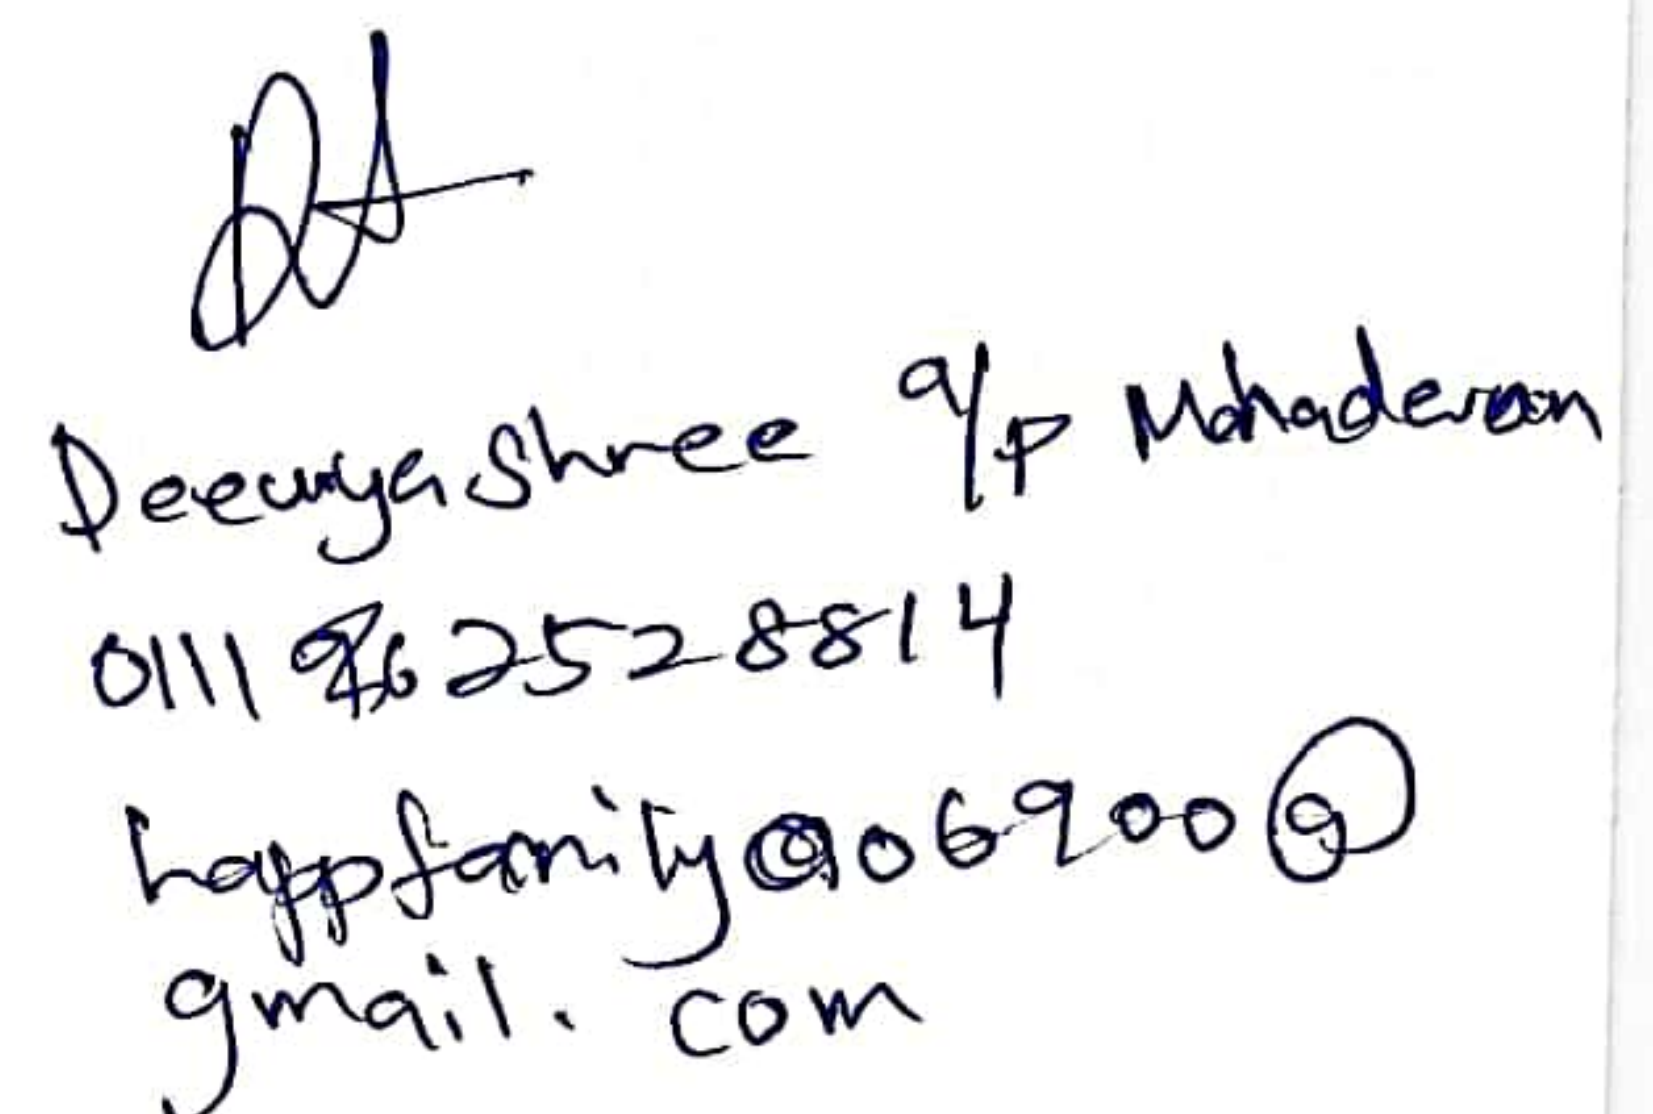 Deewya Shree a/p Mahadevan
0111 2528814
happfamily 06900@
gmail. com